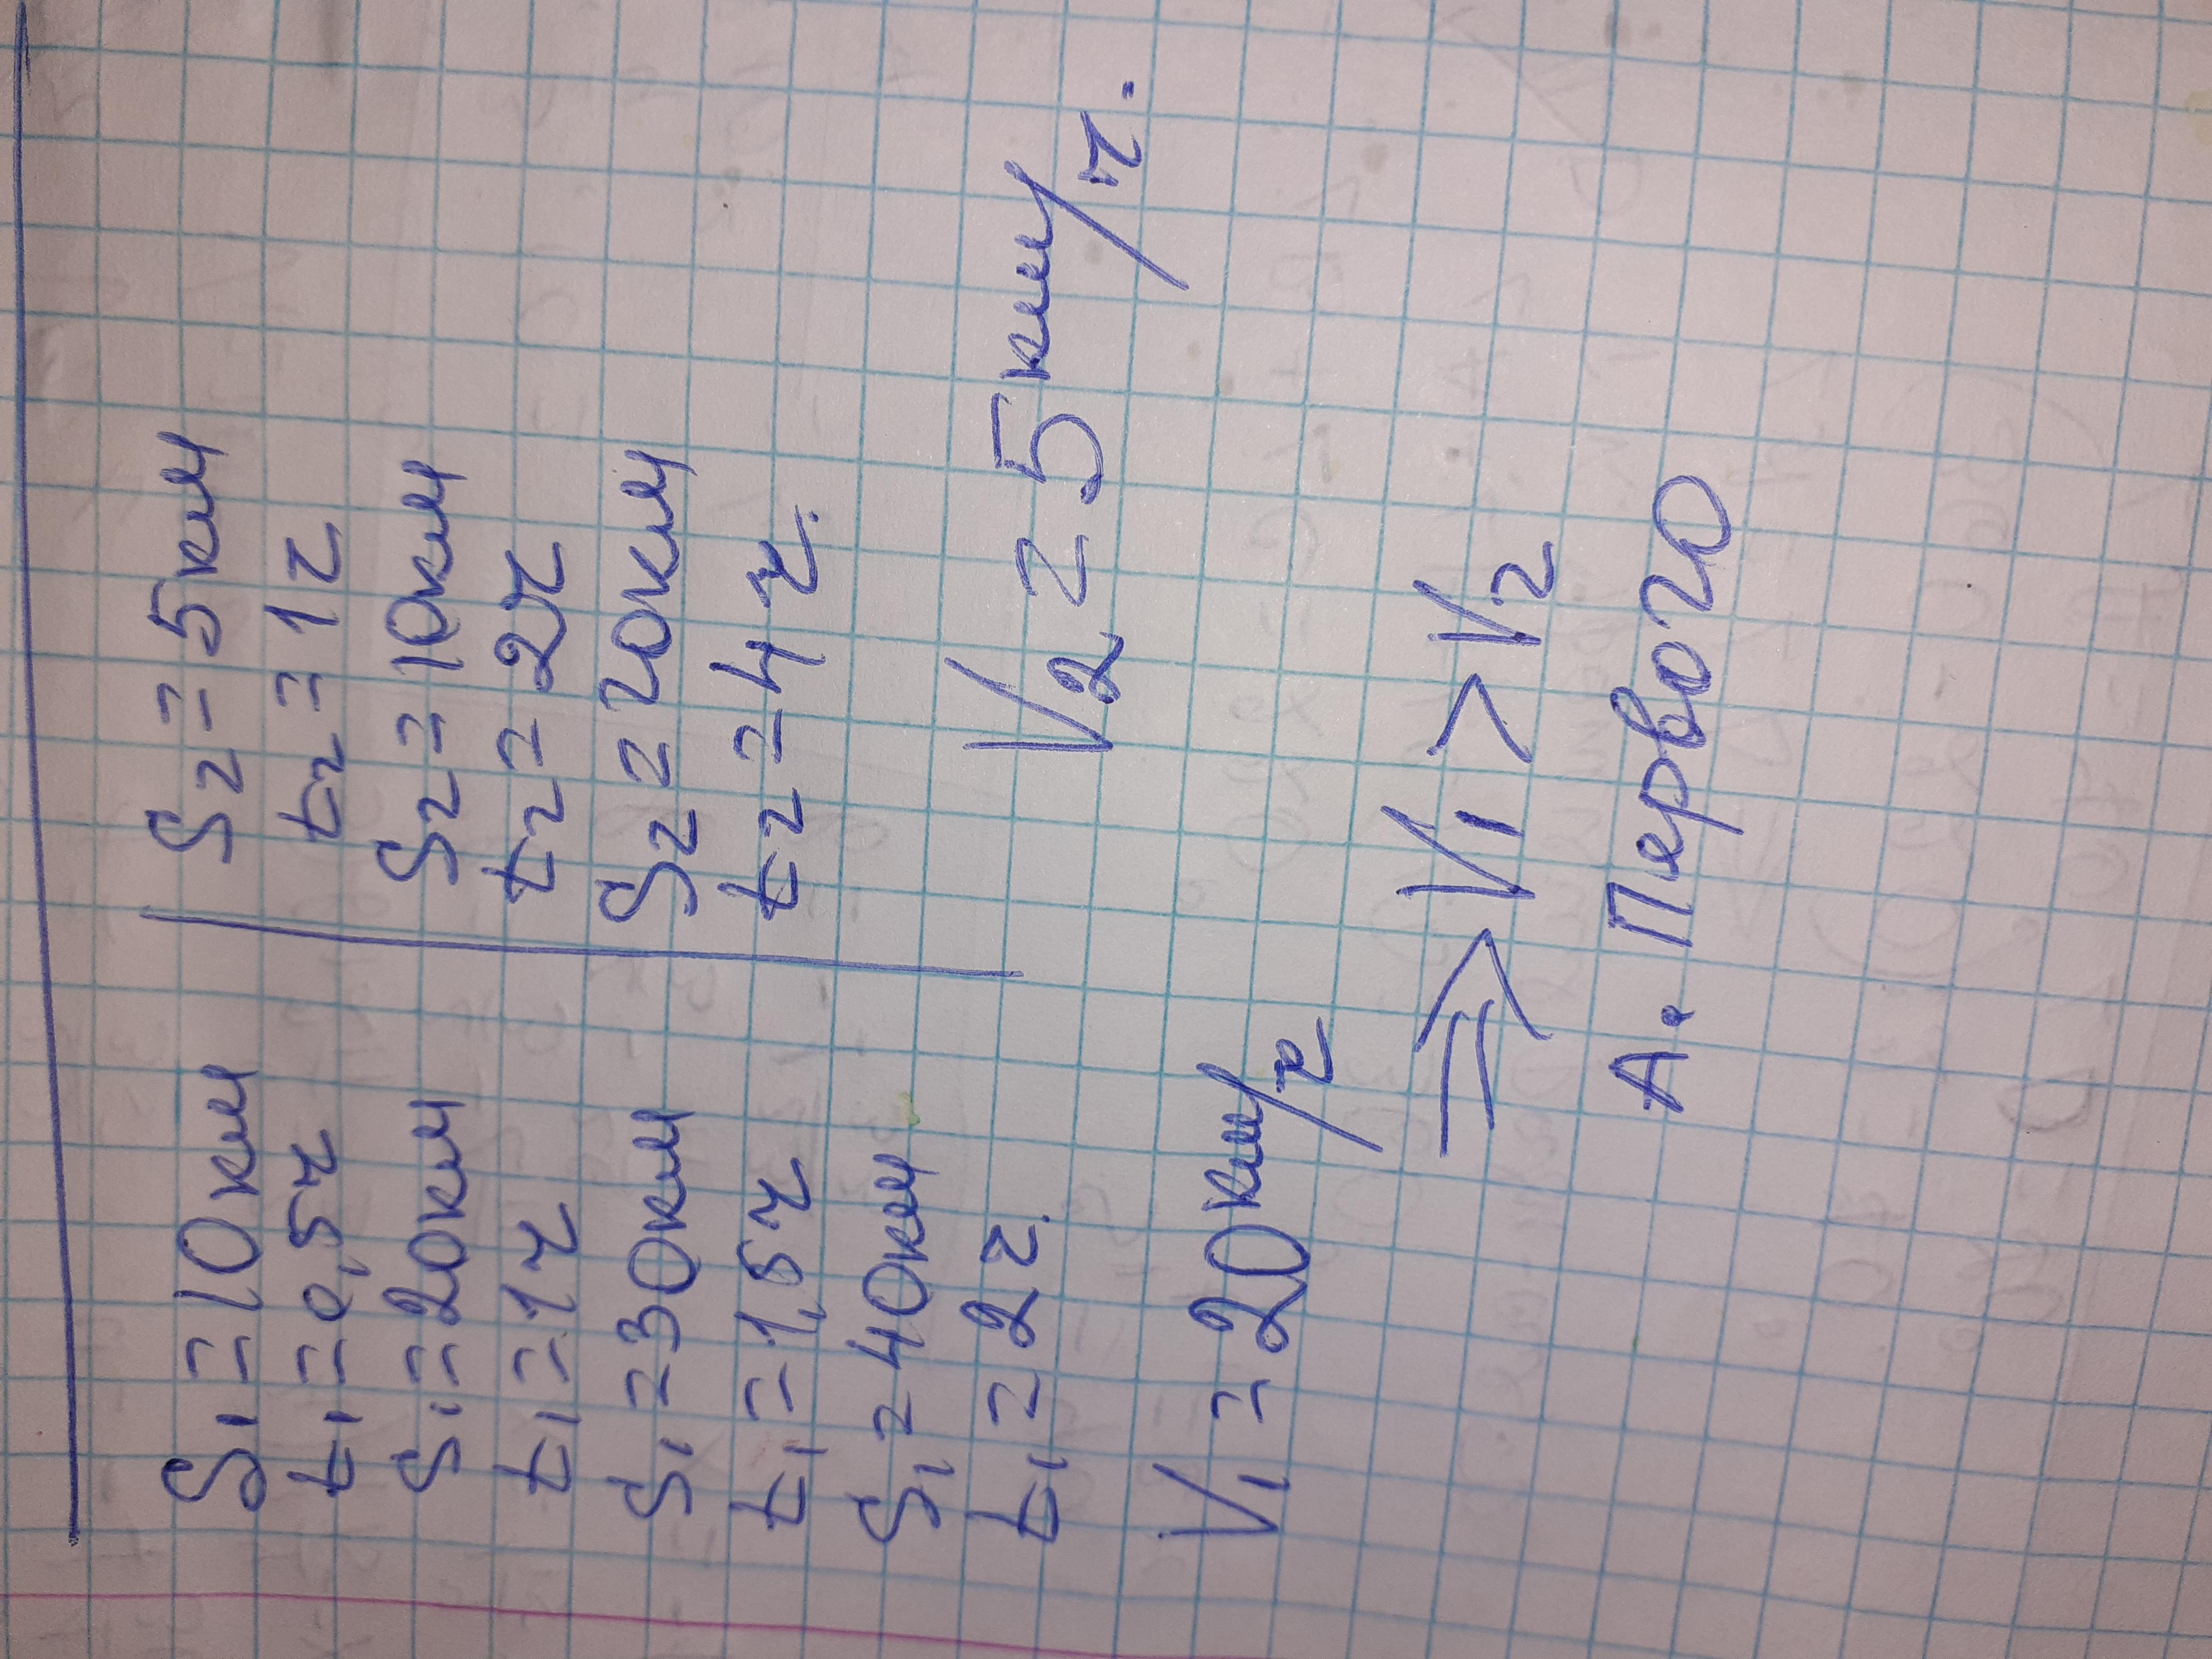 S₁ = 10км
t₁ = 0,5ч
S₁ = 20км
t₁ = 1ч
S₁ = 30км
t₁ = 1,5ч
S₁ = 40км
t₁ = 2ч.
V₁ = 20км/ч
S₂ = 5км
t₂ = 1ч
S₂ = 10км
t₂ = 2ч
S₂ = 20км
t₂ = 4ч.
V₂ = 5км/ч.
=> V₁ > V₂
А. Первого